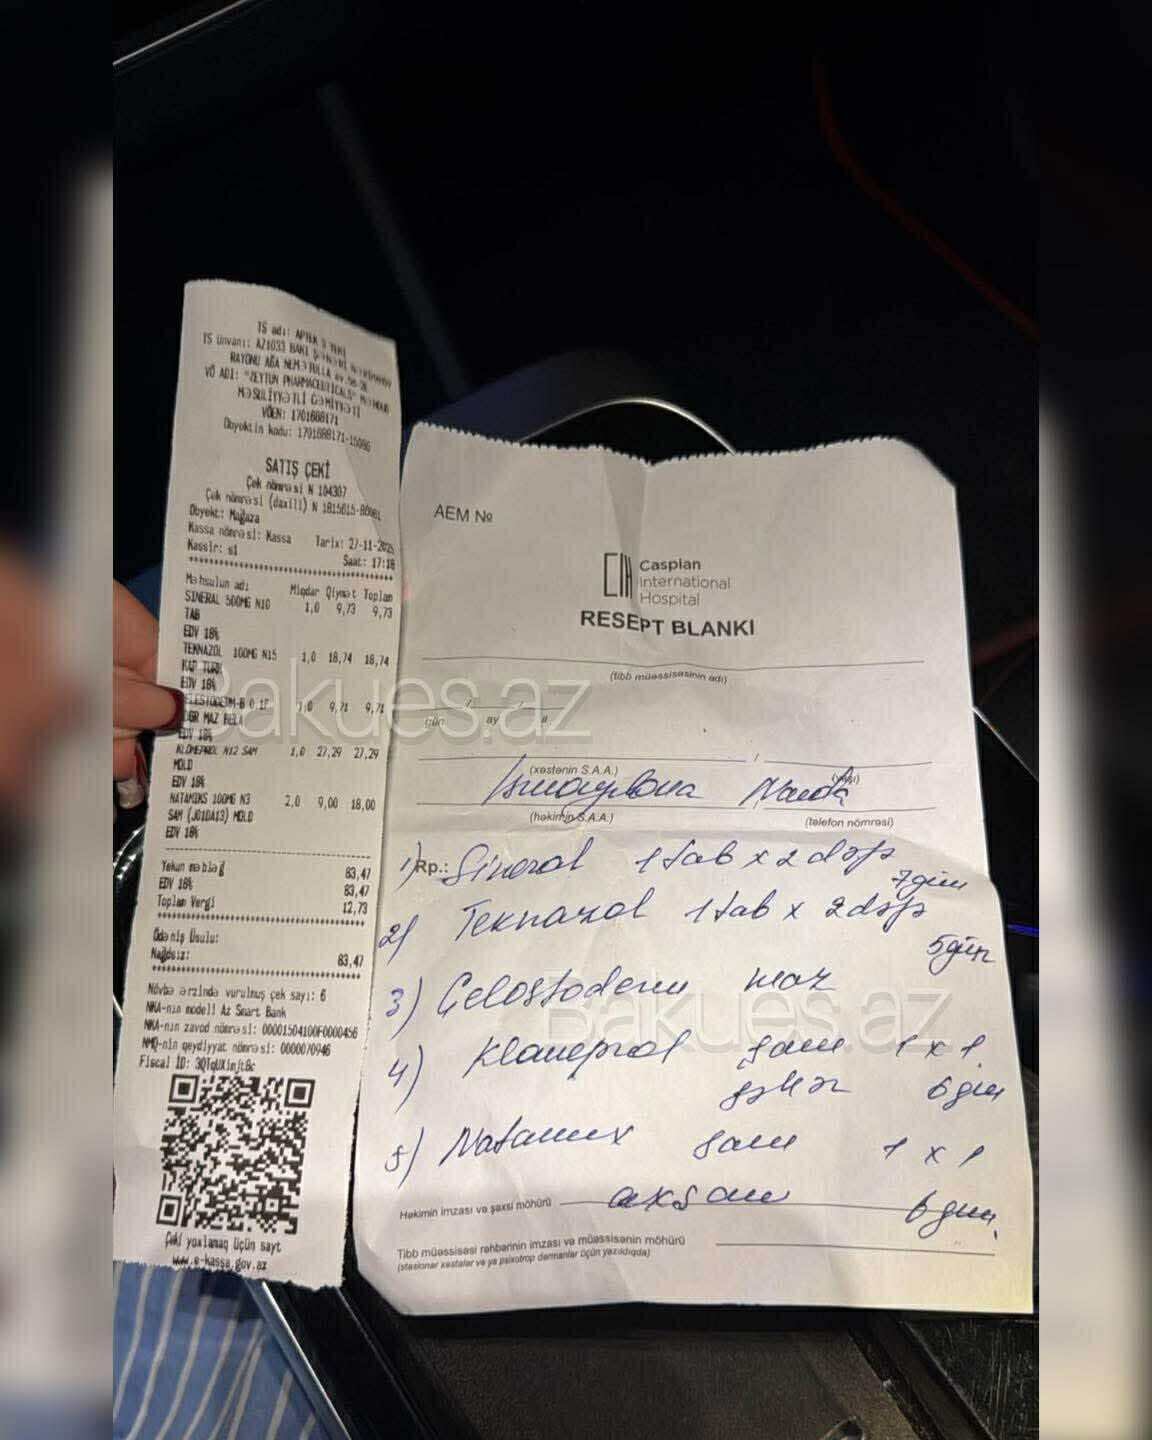 TS adı: APTEK
TS ünvanı: AZ1033 BAKI
RAYONU AĞA NEMƏTULLA
VÖ ADI: "ZEYTUN PHARMACEUTICALS" MƏHDUD
MƏSULİYYƏTLİ CƏMİYYƏTİ
VÖEN: 1701688171
Obyektin kodu: 1701688171-15086
SATIŞ ÇEKİ
Çek nömrəsi N 104307
Çek nömrəsi (daxili) N
Obyekt: Mağaza
Kassa nömrəsi: Kassa Tarix: 27-11-2025
Kassir: s1 Saat: 17:18
Məhsulun adı Miqdar Qiymət Toplam
SINERAL 500MG N10 1,0 9,73 9,73
TAB
EDV 18%
TEKNAZOL 100MG N15 1,0 18,74 18,74
KAP TURK
EDV 18%
1,0 9,71 9,71
MAZ
EDV 18%
KLOMEPROL N12 SAM 1,0 27,29 27,29
MOLD
EDV 18%
NATAMIKS 100MG N3 2,0 9,00 18,00
SAM (J01DA13) MOLD
EDV 18%
Yekun məbləğ 83,47
EDV 18% 83,47
Toplam Vergi 12,73
Ödəniş Üsulu:
Nağdsız: 83,47
Növbə ərzində vurulmuş çek sayı: 6
NKA-nın modeli Az Smart Bank
NKA-nın zavod nömrəsi: 00001504100F0000456
NMQ-nin qeydiyyat nömrəsi: 0000070946
Fiscal ID:
Çeki yoxlamaq üçün sayt
www.e-kassa.gov.az
AEM №
Caspian
International
Hospital
RESEPT BLANKI
(tibb müəssisəsinin adı)
gün / ay / il
(xəstənin S.A.A.) / (yaşı)
İsmayılova
(həkimin S.A.A.) (telefon nömrəsi)
1) Rp.: Sineral 1 tab x 2 dəfə
7 gün
2) Teknazol 1 tab x 2 dəfə
5 gün
3) Celestoderm maz
4) Klomeprol şam 1 x 1
səhər 6 gün
5) Natamix şam 1 x 1
Həkimin imzası və şəxsi möhürü axşam 6 gün
Tibb müəssisəsi rəhbərinin imzası və müəssisənin möhürü
(stasionar xəstələr və ya psixotrop dərmanlar üçün yazıldıqda)
Bakues.az
Bakues.az